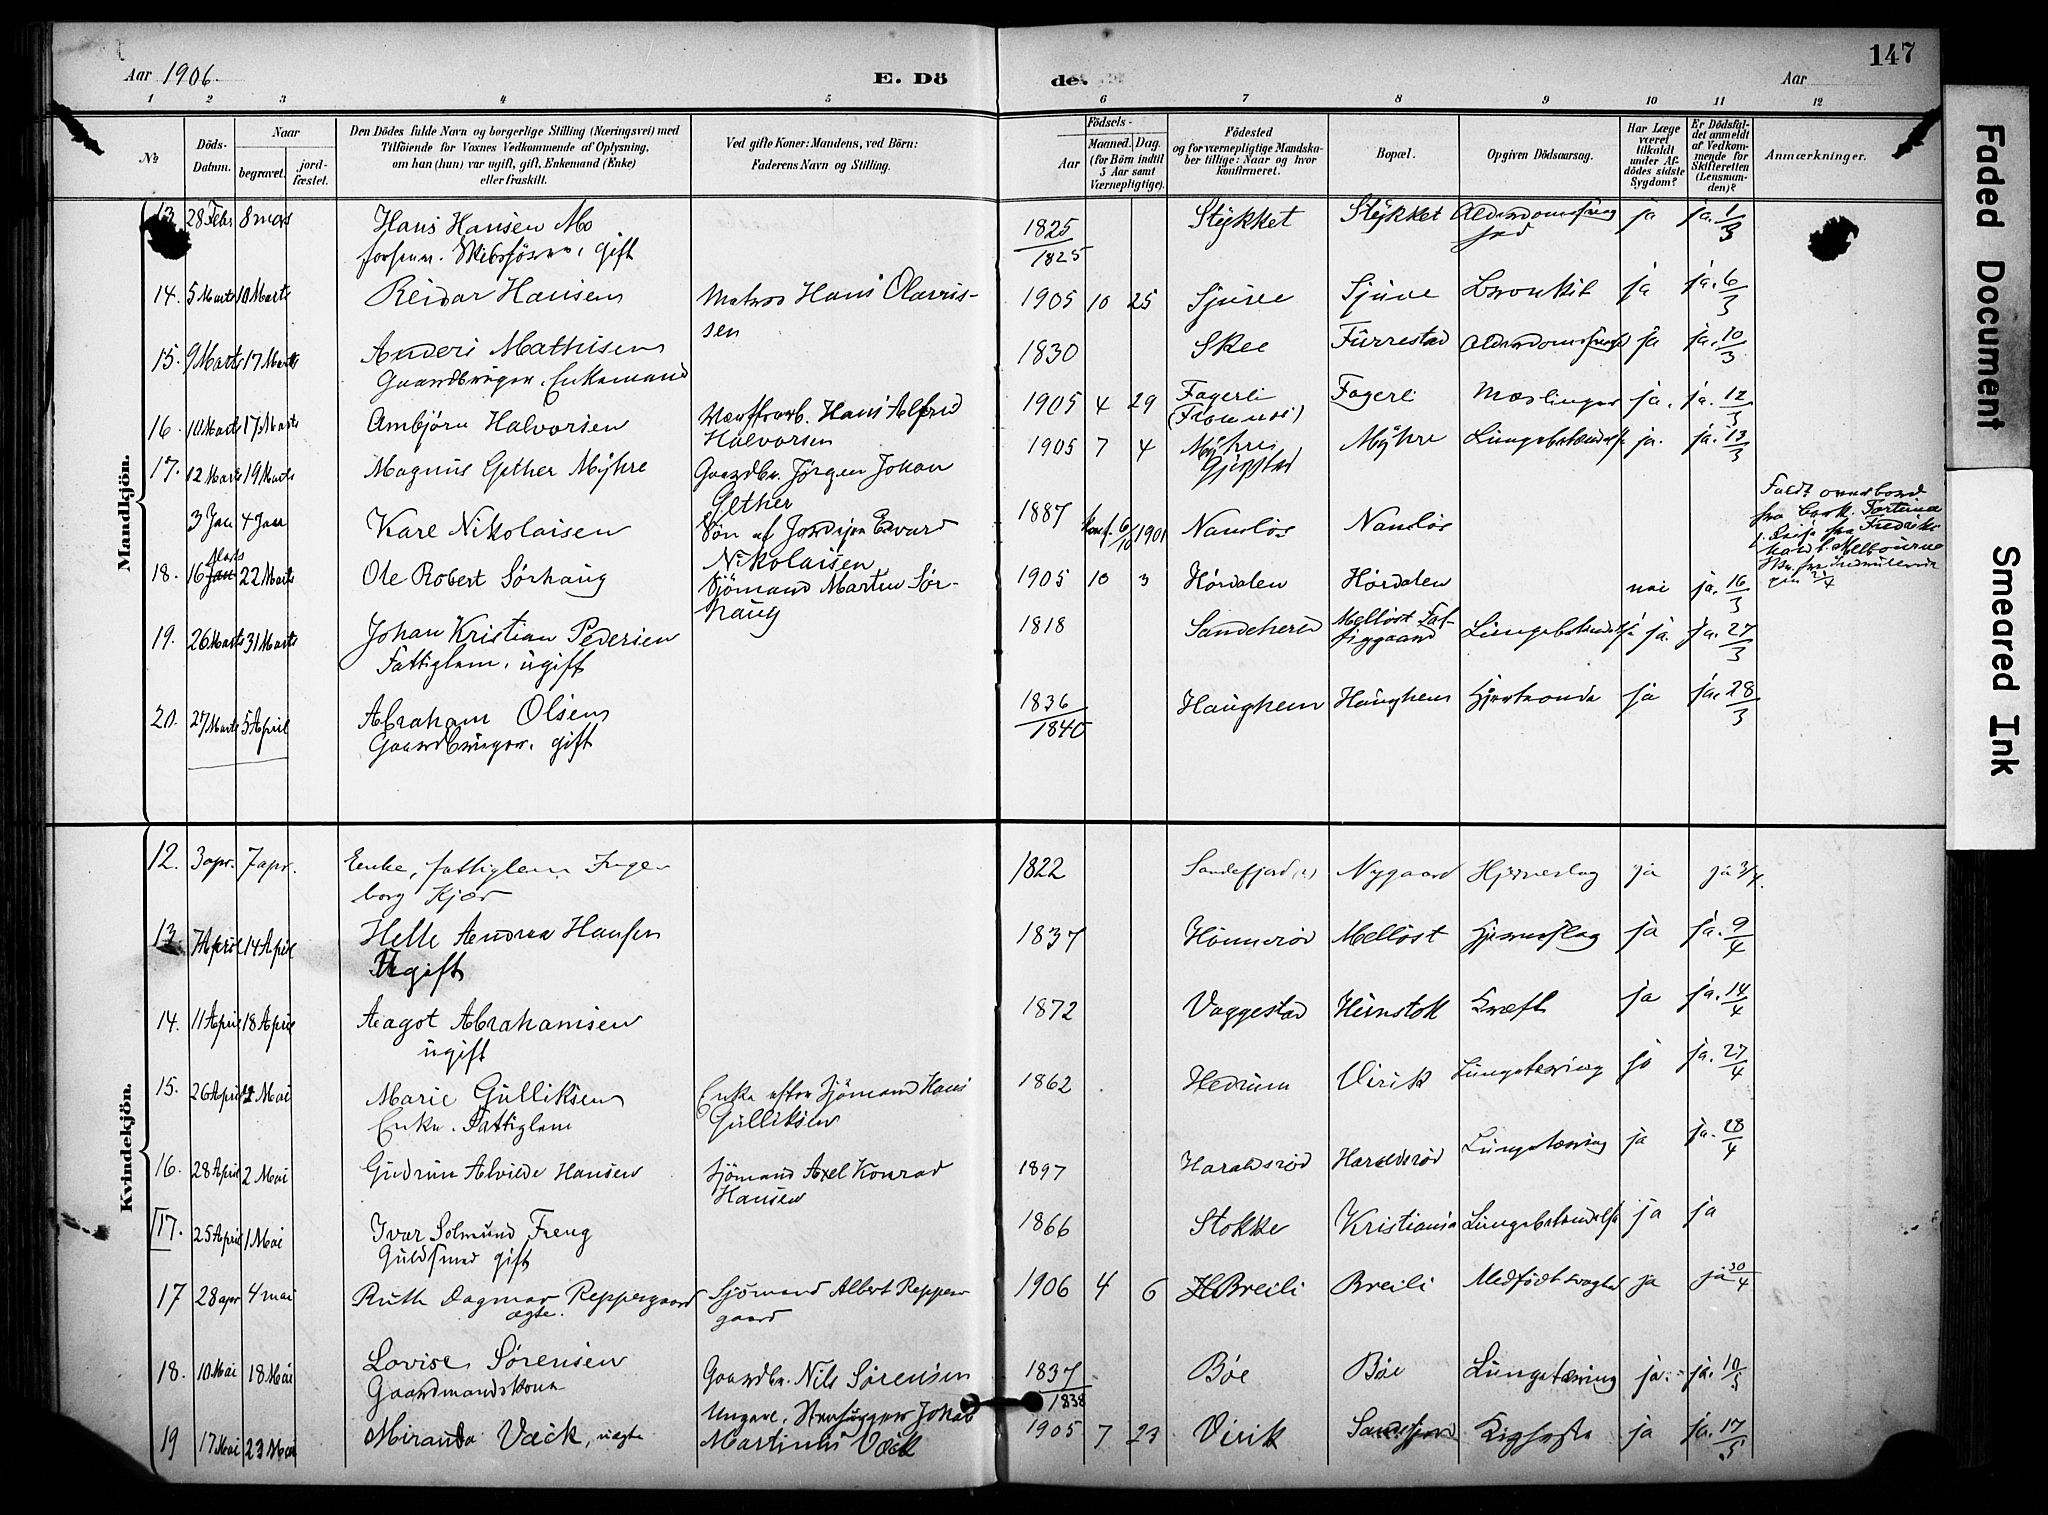 147
Aar 1906. E. Döde. Aar
1 2 3 4 5 6 7 8 9 10 11 12
№ Döds-Datum. Naar begravet. jordfæstet.
Den Dödes fulde Navn og borgerlige Stilling (Næringsvei) med Tilföiende for Voxnes Vedkommende af Oplysning, om han (hun) var ugift, gift, Enkemand (Enke) eller fraskilt.
Ved gifte Koner: Mandens, ved Börn: Faderens Navn og Stilling.
Födsels- Aar Maaned. Dag. (for Börn indtil 5 Aar samt Værnepligtige).
Födested og for værnepligtige Mandskaber tillige: Naar og hvor konfirmeret.
Bopæl.
Opgiven Dödsaarsag.
Har Læge været tilkaldt under Afdödes sidste Sygdom?
Er Dödsfaldet anmeldt af Vedkommende for Skifteretten (Lensmanden)?
Anmærkninger.
Mandkjön.
13 28 Febr 8 mars Hans Hansen Mo 1825/1825 Stykket Stykket ja ja. 1/3
gift
14. 5 Marts 10 Marts Reidar Hansen Matros Hans Olavris-
sen 1905 10 25 Sjuve Sjuve Bronkit ja ja. 6/3
15. 9 Marts 17 Marts Anders Mathisen 1830 Skee Furrestad ja ja. 10/3
Gaardbruger. Enkemand
16. 10 Marts 17 Marts Ambjørn Halvorsen Hans Alfred
Halvorsen 1905 4 29 Fagerli Fagerli Mæslinger ja. ja. 12/3
17. 12 Marts 19 Marts Magnus Gether Myhre Gaardbr. Jørgen Johan
Gether 1905 7 4 Myhre Myhre Lungebetændelse ja. ja. 13/3
Gjipstad
3 Jan 4 Jan Kare Nikolaisen Søn af Edvard
Nikolaisen 1887 konf. 6/10 1901 Namløs Namløs
Faldt overbord
fra Bark.
Reise fra Fredrik-
Melbourne
18. 16 Marts 22 Marts Ole Robert Sørhaug Sjömand Martin Sør-
haug 1905 10 3 Hørdalen Hørdalen nei ja. 16/3
19. 26 Marts 31 Marts Johan Kristian Pedersen 1818 Sandeherred Melløst Fat-
tiggaard Lungebetændelse ja. ja. 27/3
Fattiglem. ugift
20. 27 Marts 5 April Abraham Olsen 1836/1840 Haughem Haughem ja ja. 28/3
Gaardbruger. gift
Kvindekjön.
12. 3 apr. 7 apr. Enke, fattiglem Inge-
borg Kjær 1822 Sandefjord (?) Nygaard Hjerneslag ja ja 3/4.
13 7 April 14 April Helle Andrea Hansen 1837 Hønnerød Melløst Hjerneslag ja ja. 9/4
Ugift
14. 11 April 18 April Aagot Abrahamsen 1872 Vaggestad Heimstok Kræft ja ja. 14/4
ugift
15. 26 April 2 Mai Marie Gulliksen Enke efter Sjömand Hans
Gulliksen 1862 Hedrum Virik Lungetæring ja ja. 27/4
Enke. Fattiglem
16. 28 April 2 Mai Gudrun Alvilde Hansen Sjömand Axel Konrad
Hansen 1897 Haraldsrød Haraldsrød Lungetæring ja ja. 28/4
17. 25 April 1 Mai Ivar Solmund Freng 1866 Stokke Kristiania Lungebetændelse ja ja
Guldsmed gift
17 28 apr 4 mai Ruth Dagmar Reppergaard Sjömand Albert Repper-
gaard 1906 4 6 Breili Breili Medfødt svaghed ja ja 30/4
ægte.
18. 10 Mai 18 Mai Lovise Sørensen Gaardbr. Nils Sørensen 1837/1838 Bøe Bøe Lungetæring ja. ja. 10/5
Gaardmandskone
19 17 Mai 23 Mai Miranda Væck, uægte Ungkarl, Stenhugger Johan
Martinius Væck 1905 7 23 Virik Sandefjord Kighoste ja ja. 17/5
Faded Document
Smeared Ink